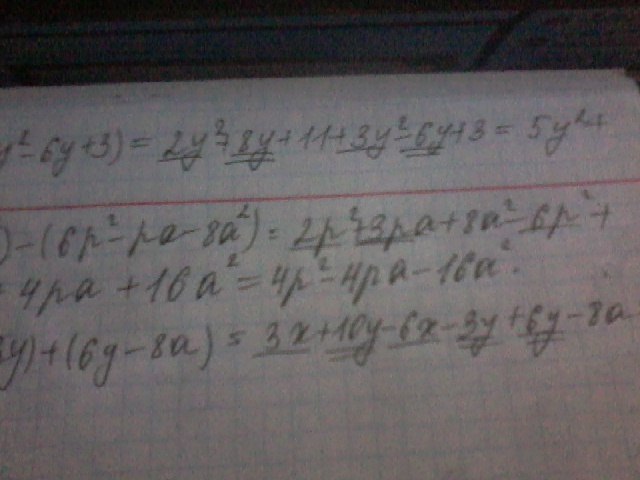 y²-6y+3)=2y²+8y+11+3y²-6y+3=5y²+
)-(6p²-pa-8a²)=2p²+3pa+8a²-6p²+
4pa+16a²=4p²-4pa-16a².
3y)+(6y-8a)=3x+10y-6x-3y+6y-8a